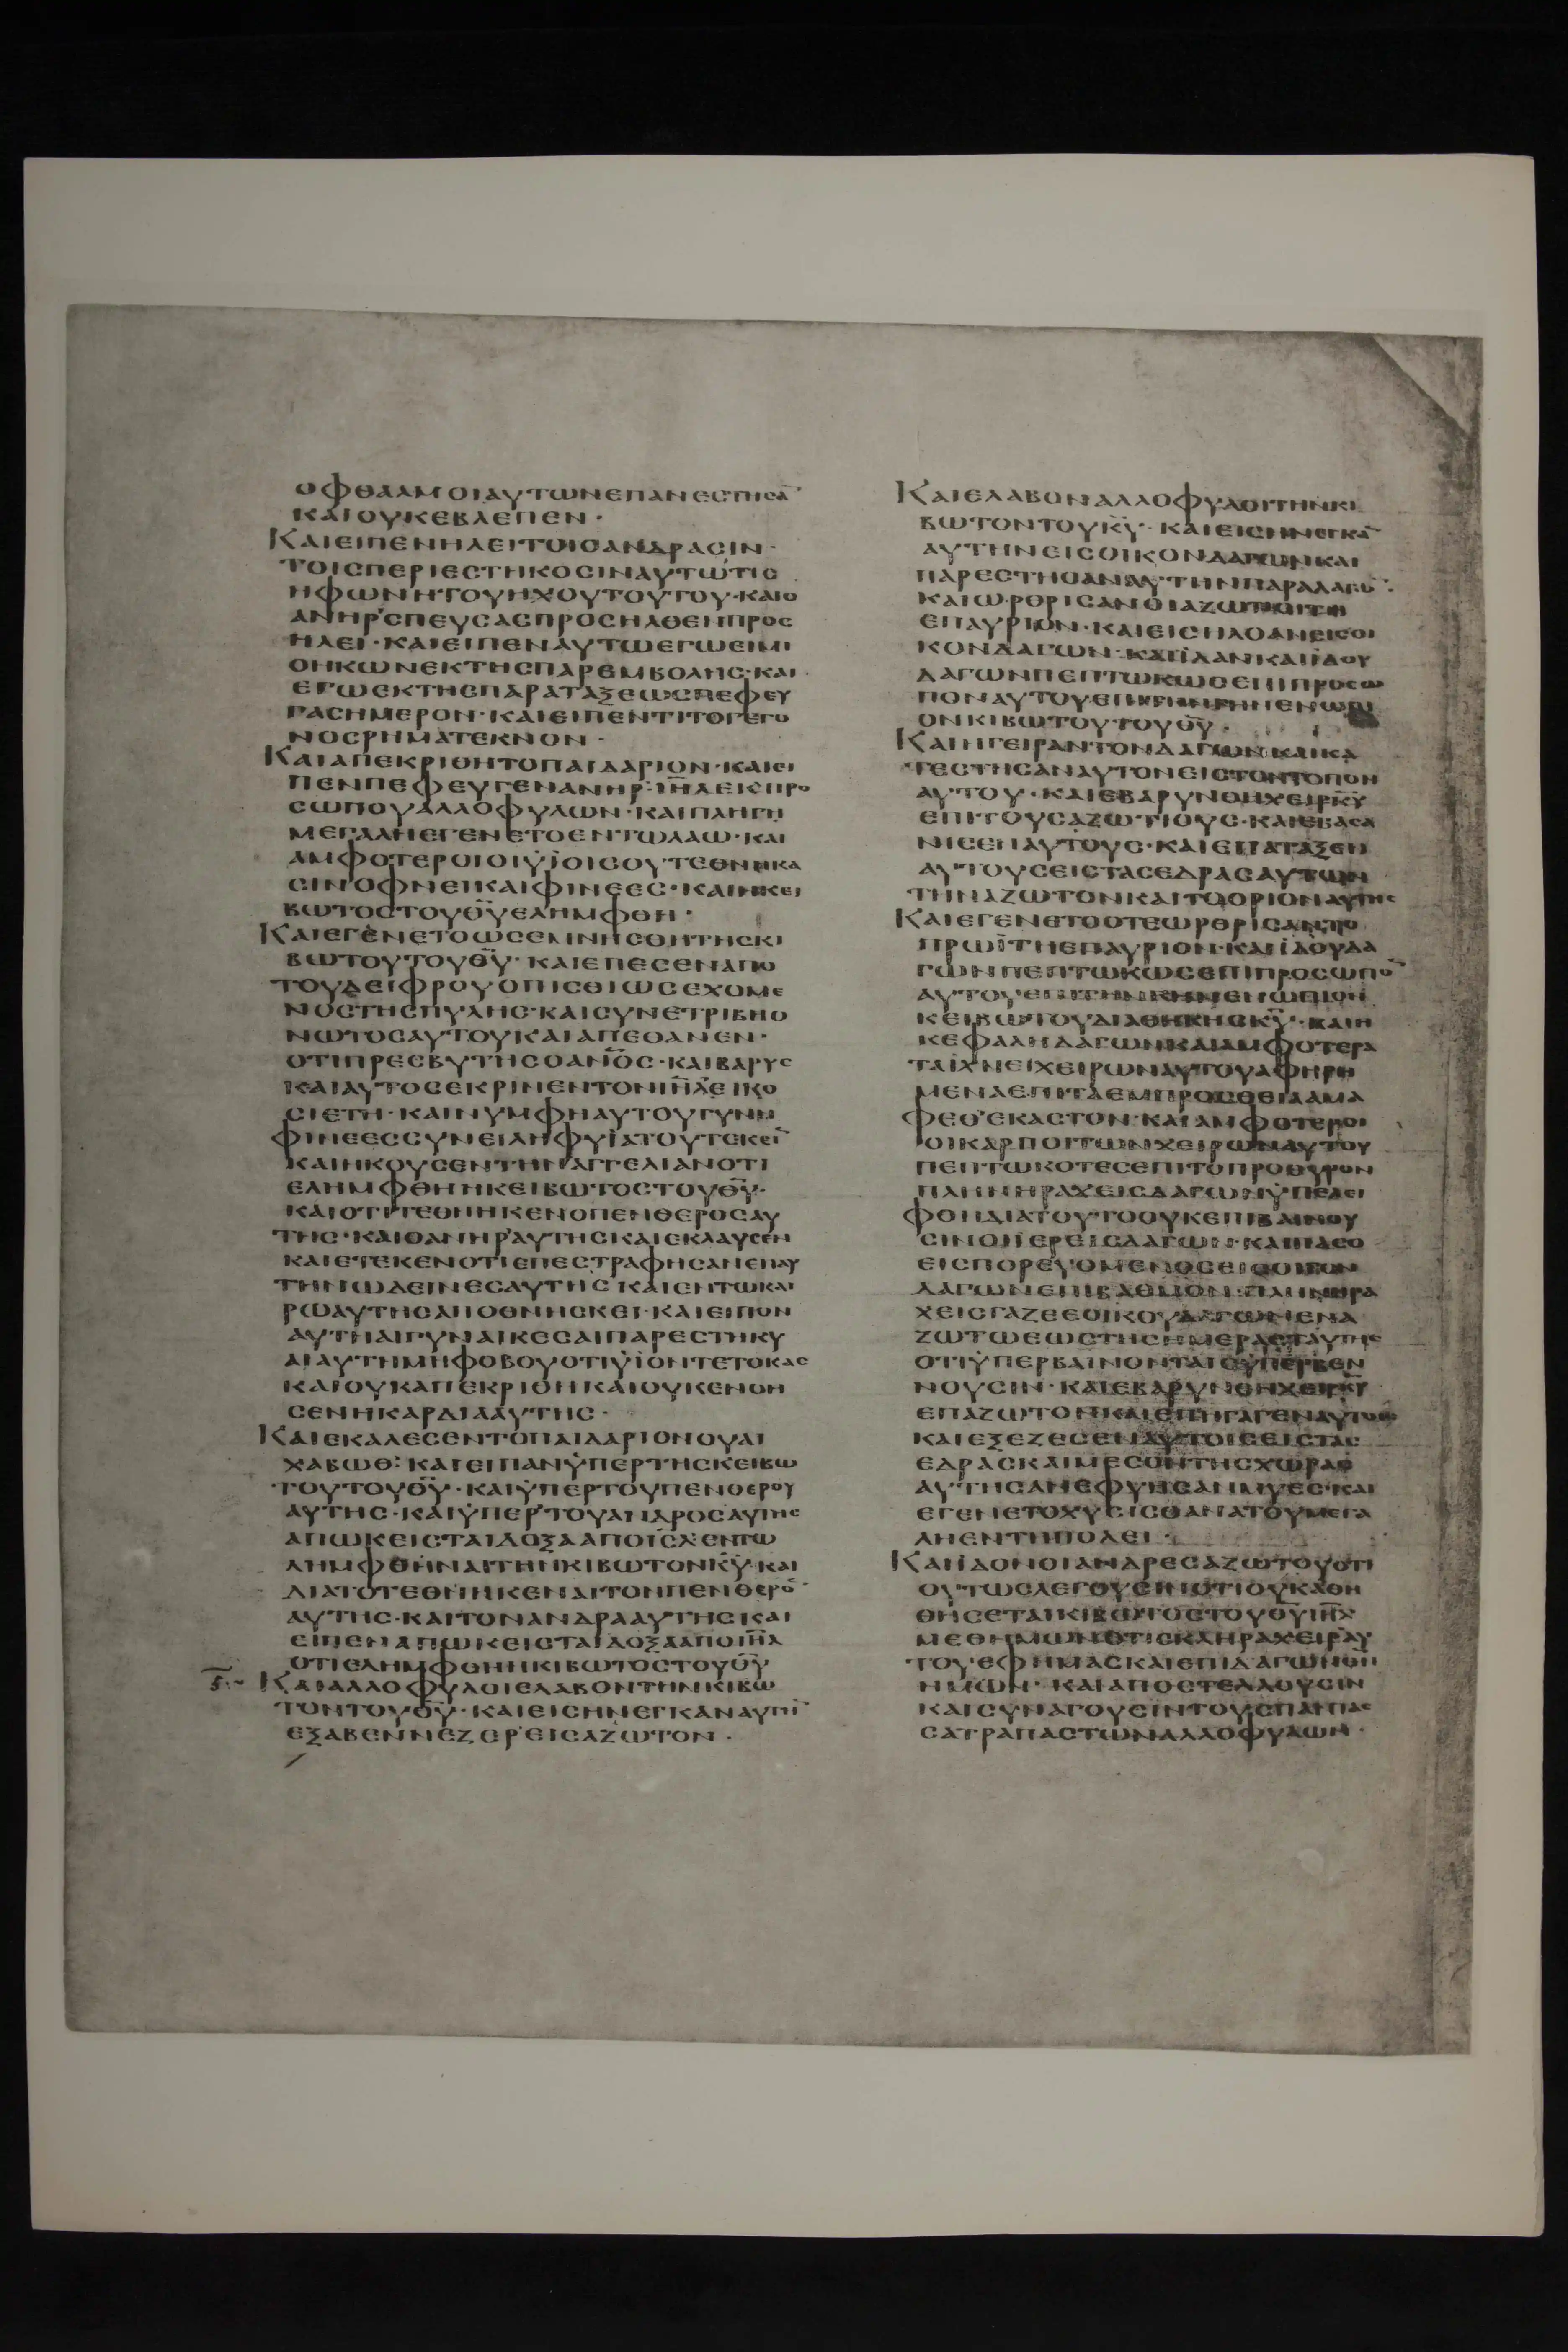 οφθαλμοιαυτωνεπανεστησα̅
καιουκεβλεπεν·
Καιειπενηλειτοισανδρασιν·
τοισπεριεστηκοσιναυτωτισ
ηφωνητουηχουτουτου·καιο
ανηρσπευσασπροσηλθενπροσ
ηλει·καιειπεναυτωεγωειμι
οηκωνεκτησπαρεμβολησ·και
εγωεκτησπαραταξεωσπεφευ
γασημερον·καιειπεντιτογεγο
νοσρηματεκνον·
Καιαπεκριθητοπαιδαριον·καιει
πενπεφευγενανηρι̅η̅λ̅εκπρο
σωπουαλλοφυλων·καιπληγη
μεγαληεγενετοεντωλαω·και
αμφοτεροιοιϋϊοισουτεθνηκα
σινοφνεικαιφινεεσ·καιηκει
βωτοστουθ̅υ̅ελημφθη·
Καιεγενετοωσεμνησθητησκι
βωτουτουθ̅υ̅·καιεπεσεναπο
τουδειφρουοπισθιωσεχομε
νοστησπυλησ·καισυνετριβηο
νωτοσαυτουκαιαπεθανεν·
οτιπρεσβυτησοαν̅ο̅σ̅·καιβαρυσ
καιαυτοσεκρινεντονι̅η̅λ̅εικο
σιετη·καινυμφηαυτουγυνη
φινεεσσυνειληφυϊατουτεκει̅
καιηκουσεντηναγγελιανοτι
ελημφθηηκειβωτοστουθ̅υ̅·
καιοτιτεθνηκενοπενθεροσαυ
τησ·καιοανηραυτησκαιεκλαυσεν
καιετεκενοτιεπεστραφησανεπαυ
τηνωδεινεσαυτησκαιεντωκαι
ρωαυτησαποθνησκει·καιειπον
αυτηαιγυναικεσαιπαρεστηκυ
αιαυτημηφοβουοτιϋϊοντετοκασ
καιουκαπεκριθηκαιουκενοη
σενηκαρδιααυτησ·
Καιεκαλεσεντοπαιδαριονουαι
χαβωθ:καιειπανϋπερτησκειβω
τουτουθ̅υ̅·καιϋπερτουπενθερου
αυτησ·καιϋπερτουανδροσαυτησ
απωκεισταιδοξααποϊσ̅λ̅εντω
λημφθηναιτηνκιβωτονκ̅υ̅·και
διατοτεθνηκεναιτονπενθερο̅
αυτησ·καιτονανδρααυτησκαι
ειπεναπωκεισταιδοξααποι̅η̅λ̅
οτιελημφθηηκιβωτοστουθ̅υ̅
Καιαλλοφυλοιελαβοντηνκιβω
τοντουθ̅υ̅·καιεισηνεγκαναυτη̅
εξαβεννεζερεισαζωτον·
Καιελαβοναλλοφυλοιτηνκι
βωτοντουκ̅υ̅·καιεισηνεγκα̅
αυτηνεισοικονδαγωνκαι
παρεστησαναυτηνπαραδαγω̅·
καιωρθρισανοιαζωτιοιτη
επαυριον·καιεισηλθανεισοι
κονδαγων·καιϊδανκαιϊδου
δαγωνπεπτωκωσεπιπροσω
ποναυτουεπιτηνγηνενωπι
ονκιβωτουτουθ̅υ̅·
Καιηγειραντονδαγωνκαικα
τεστησαναυτονειστοντοπον
αυτου·καιεβαρυνθηχειρκ̅υ̅
επιτουσαζωτιουσ·καιεβασα
νισεναυτουσ·καιεπαταξεν
αυτουσειστασεδρασαυτων
τηναζωτονκαιτοοριοναυτησ
Καιεγενετοοτεωρθρισαντο
πρωϊτηεπαυριον·καιϊδουδα
γωνπεπτωκωσεπιπροσωπο̅
αυτουεπιτηνγηνενωπιον
κειβωτουδιαθηκησκ̅υ̅·καιη
κεφαληδαγωνκαιαμφοτερα
ταϊχνειχειρωναυτουαφηρη
μεναεπιταεμπροσθειααμα
φεθεκαστον·καιαμφοτεροι
οικαρποιτωνχειρωναυτου
πεπτωκοτεσεπιτοπροθυρον
πληνηραχεισδαγωνϋπελει
φθηδιατουτοουκεπιβαινου
σινοϊερεισδαγων·καιπασο
εισπορευομενοσεισοικον
δαγωνεπιβαθμον·πληνηρα
χεισγαζεεοικουδαγωνενα
ζωτωεωστησημερασταυτησ
οτιϋπερβαινονταιϋπερβεν
νουσιν·καιεβαρυνθηχειρκ̅υ̅
επαζωτονκαιεπηγαγεναυτοισ
καιεξεζεσεναυτοισειστασ
εδρασκαιμεσοντησχωρασ
αυτησανεφυησανμυεσ·και
εγενετοχυσισθανατουμεγα
ληεντηπολει·
Καιϊδονοιανδρεσαζωτουοτι
ουτωσλεγουσινοτιουκαθη
θησεταικιβωτοστουθ̅υ̅ι̅η̅λ̅
μεθημωνοτισκληραχειραυ
τουεφημασκαιεπιδαγωνθν
ημων·καιαποστελλουσιν
καισυναγουσιντουσπαντασ
σατραπαστωναλλοφυλων·